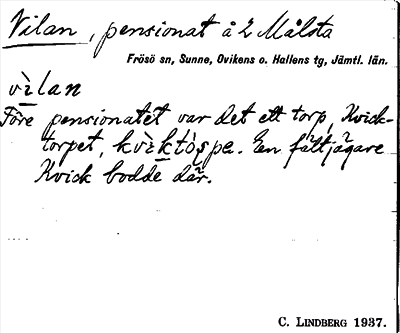 Vilan, pensionat å 2 Målsta
Frösö sn, Sunne, Ovikens o. Hallens tg, Jämtl. län.
vìlan
Före pensionatet var det ett torp, Kvick-
torpet, kvìktòʂpe. En fältjägare
Kvick bodde där.
C. LINDBERG 1937.